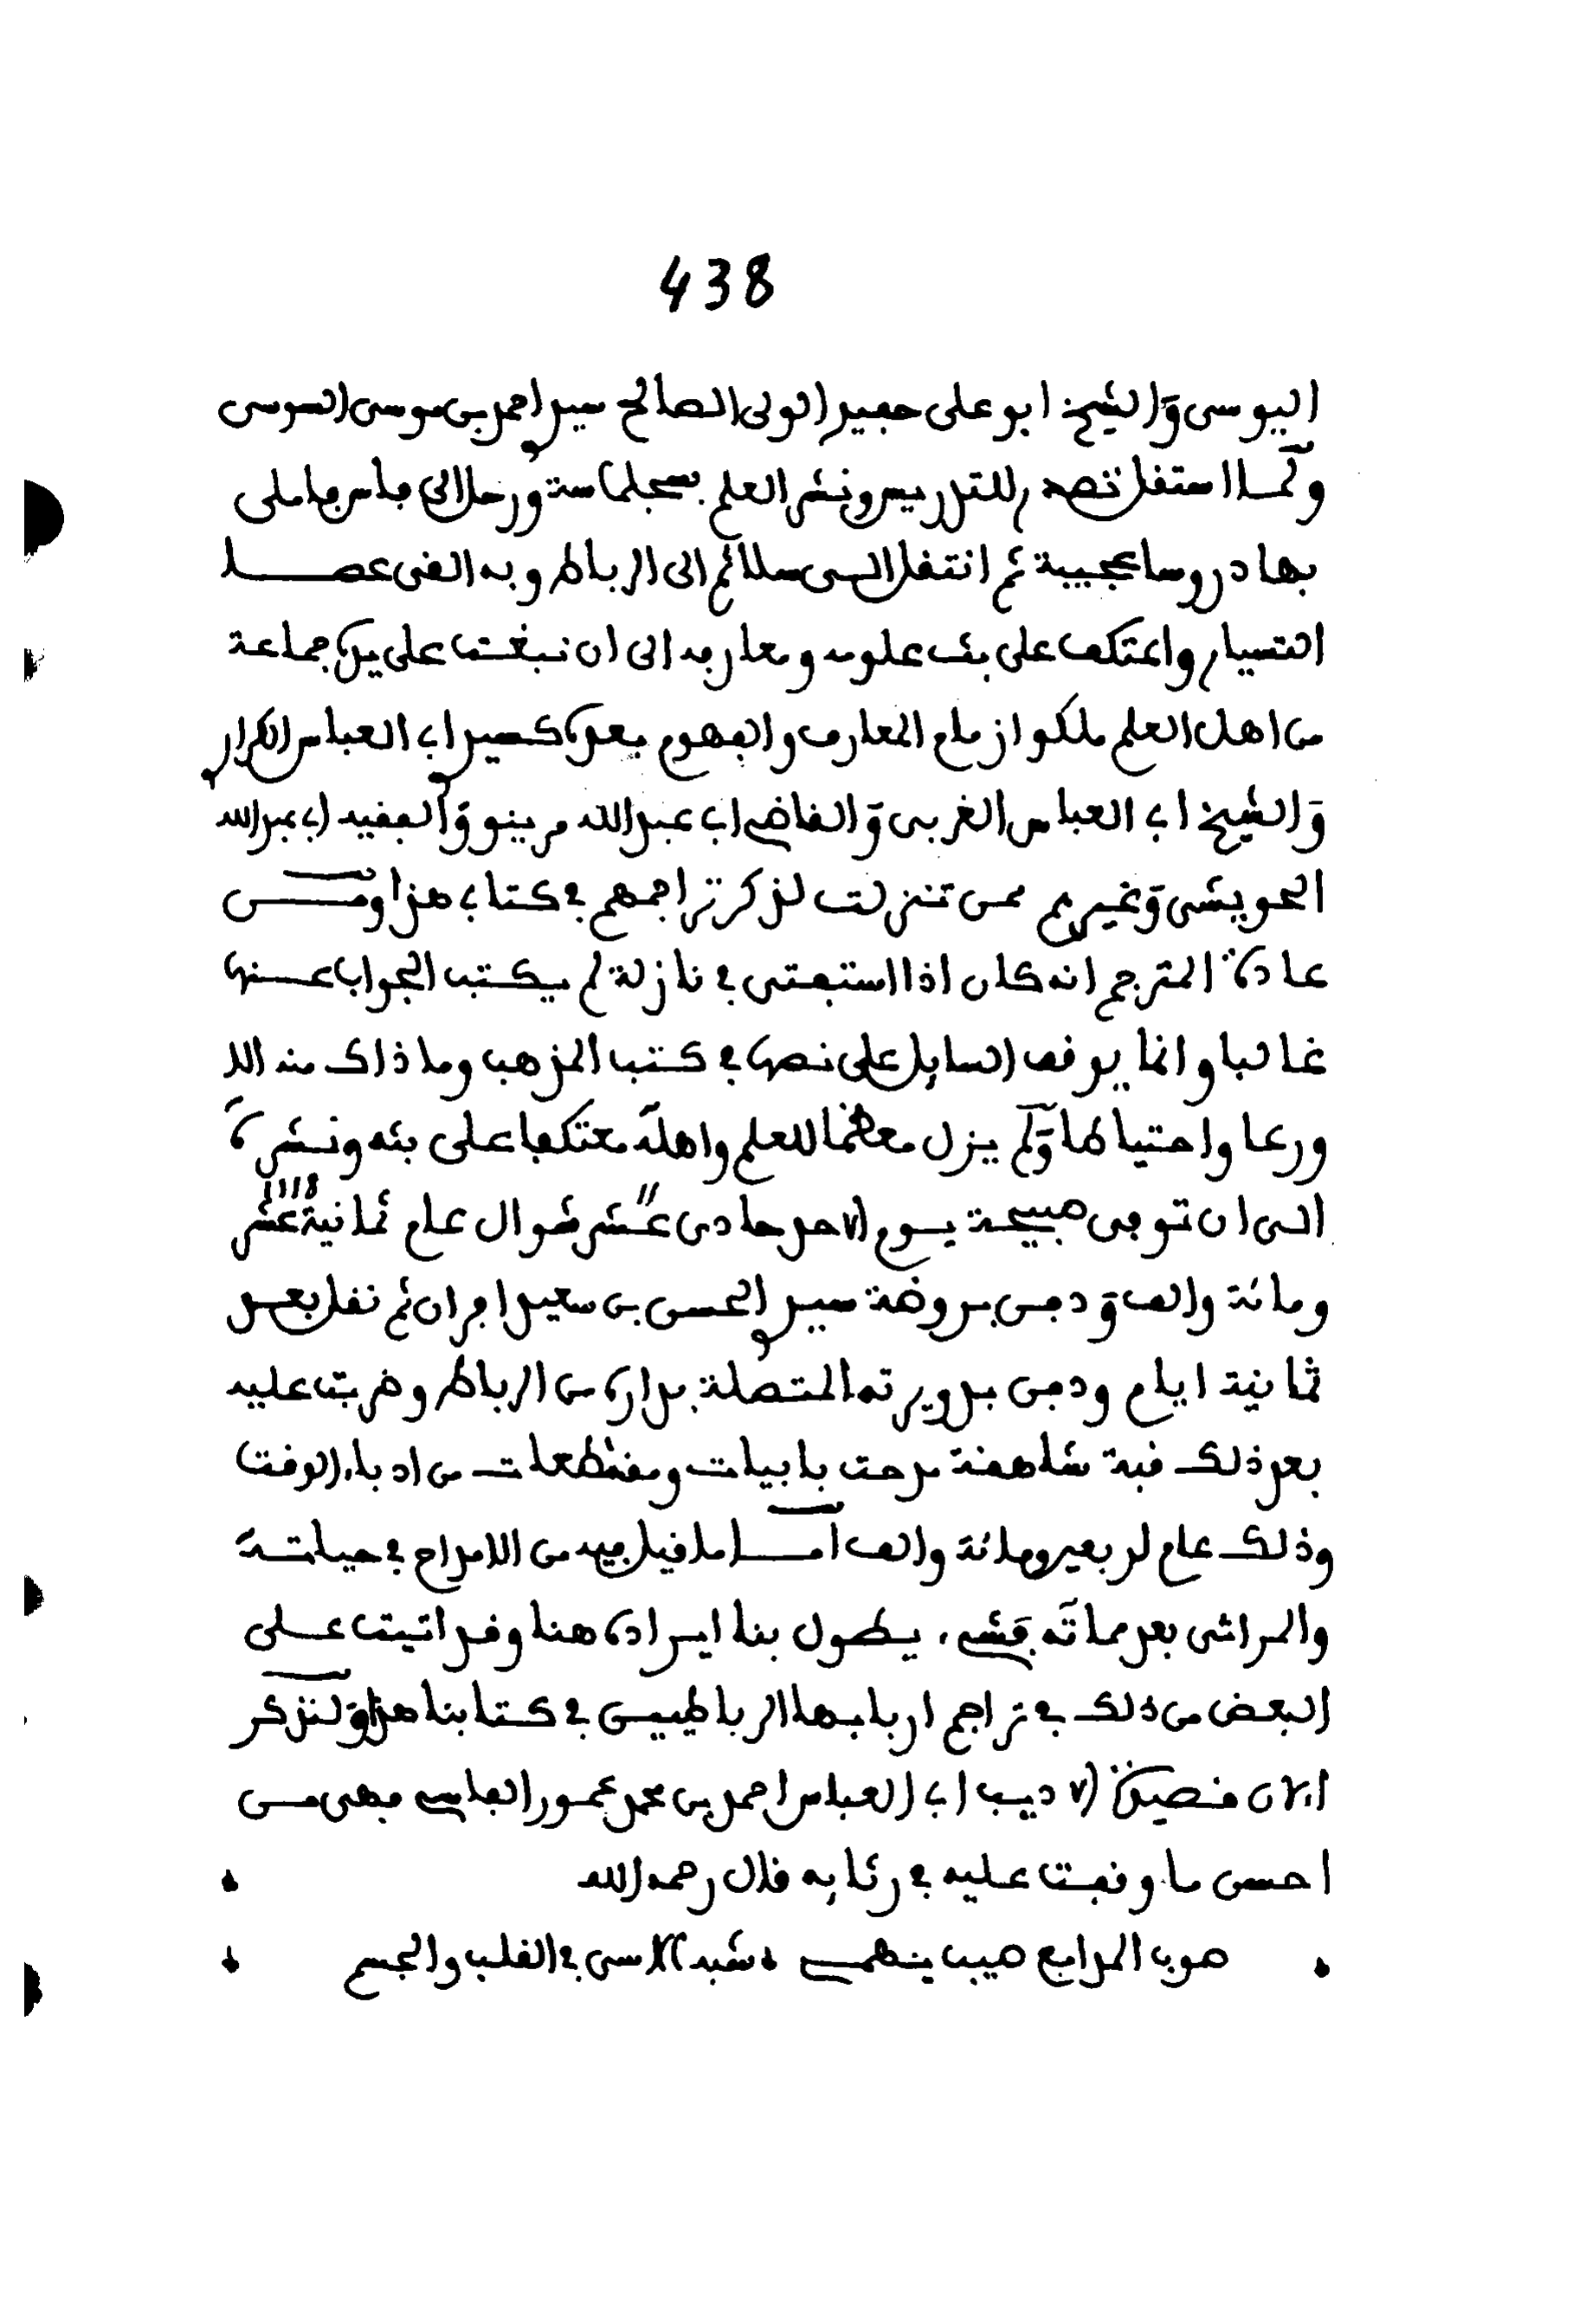 438
اليوسي والشيخ ابو علي حفيد الولي الصالح سيدي احمد بن موسى السوسي
ولما استقل تصدى للتدريس ونشر العلم بسجلماسة ورحل الى فاس فاملى
بها دروسا عجيبة ثم انتقل الى سلا ثم الى الرباط وبه القى عصا
التسيار واعتكف على بث علومه ومعارفه الى ان نبغت على يده جماعة
من اهل العلم ملكوا زمام المعارف والفهوم بعده كسيدي ابي العباس الكرار
والشيخ ابي العباس الغربي والقاضي ابي عبد الله مرينو والفقيه ابي عبد الله
الحويشي وغيرهم ممن تنزلت لذكر تراجمهم في كتابي هذا ومن
عادة المترجم انه كان اذا استفتي في نازلة لم يكتب الجواب عنها
غالبا وانما يوقف السايل على نصها في كتب المذهب وما ذاك منه الا
ورعا واحتياطا ولم يزل معظما للعلم واهله معتكفا على بثه ونشره
الى ان توفي صبيحة يوم الاحد حادي عشر شوال عام ثمانية عشر
ومائة والف ودفن بروضة سيدي الحسن بن سعيد افران ثم نقل بعد
ثمانية ايام ودفن بدويرته المتصلة بداره من الرباط وضربت عليه
بعد ذلك قبة شاهقة مدحت بابيات ومقطعات من ادباء الوقت
وذلك عام اربعين ومائة والف اما ما قيل فيه من الامداح في حياته
والمراثي بعد مماته فشيء يطول بنا ايراده هنا وقد اتيت على
البعض من ذلك في تراجم اربابها الرباطيين في كتابنا هذا ولنذكر
الان قصيدة الاديب ابي العباس احمد بن محمد عمور الفاسي فهي من
احسن ما وقفت عليه في رثايه قال رحمه الله
صوب المدامع صيب ينهمي شبه الاسى في القلب والجسم